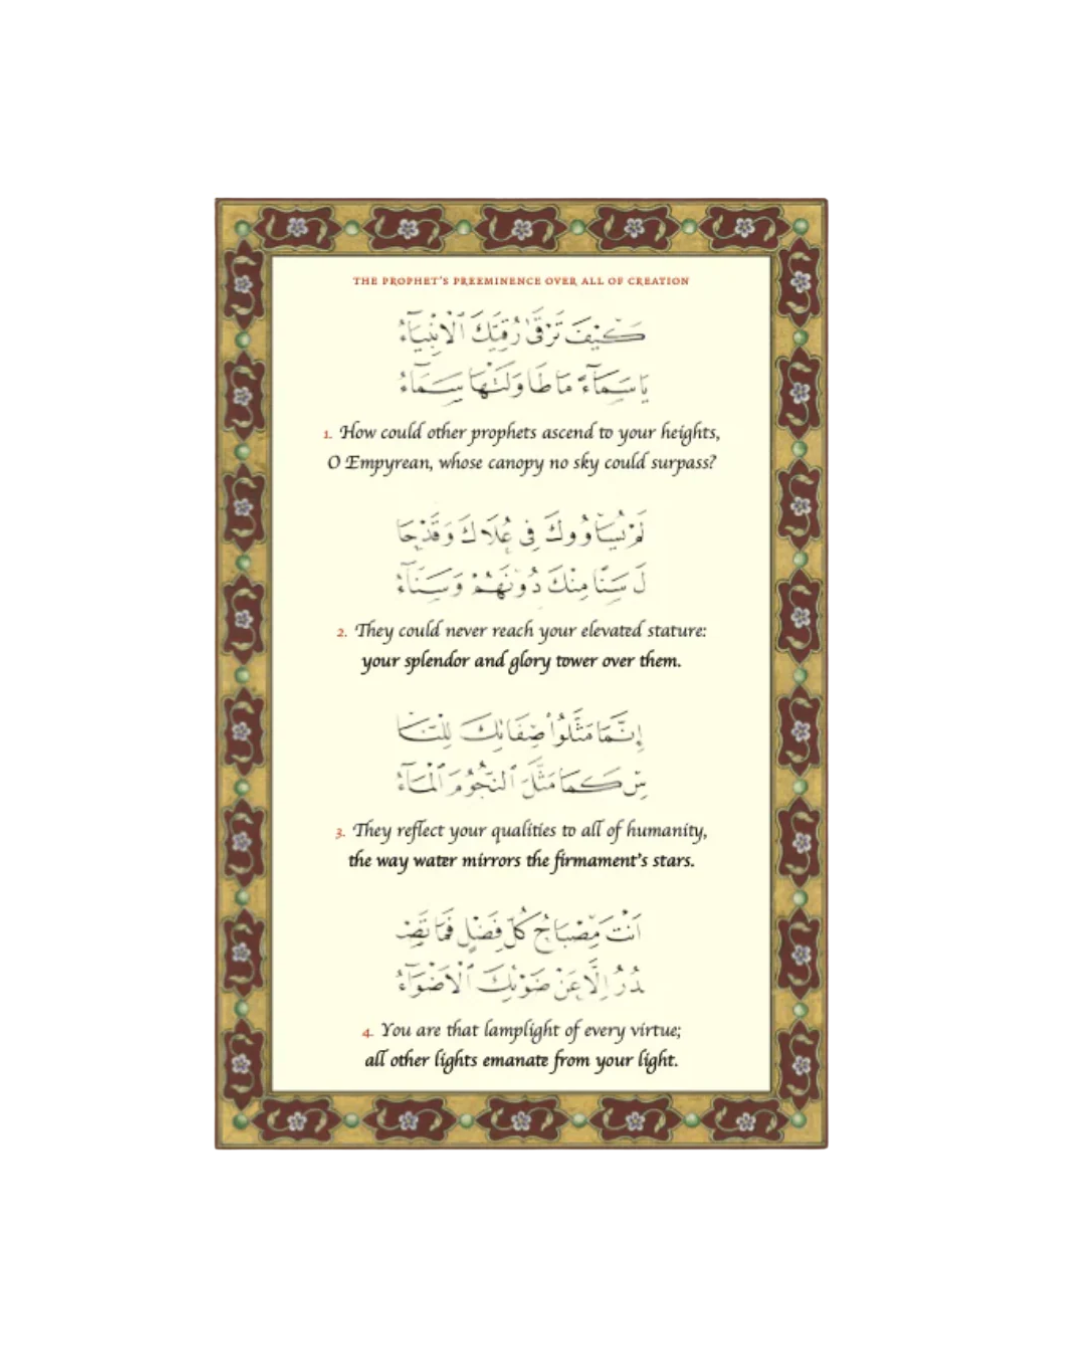 THE PROPHET'S PREEMINENCE OVER ALL OF CREATION
كَيْفَ تَرْقَىٰ رُقِيَّكَ ٱلْأَنْبِيَاءُ
يَا سَمَاءً مَا طَاوَلَتْهَا سَمَاءُ
1. How could other prophets ascend to your heights,
O Empyrean, whose canopy no sky could surpass?
لَمْ يُسَاوُوكَ فِي عُلَاكَ وَقَدْ حَا
لَ سَنًا مِنْكَ دُونَهُمْ وَسَنَاءُ
2. They could never reach your elevated stature:
your splendor and glory tower over them.
إِنَّمَا مَثَّلُوا صِفَاتِكَ لِلنَّا
سِ كَمَا مَثَّلَ ٱلنُّجُومَ ٱلْمَاءُ
3. They reflect your qualities to all of humanity,
the way water mirrors the firmament's stars.
أَنْتَ مِصْبَاحُ كُلِّ فَضْلٍ فَمَا تَصْ
دُرُ إِلَّا عَنْ ضَوْئِكَ ٱلْأَضْوَاءُ
4. You are that lamplight of every virtue;
all other lights emanate from your light.